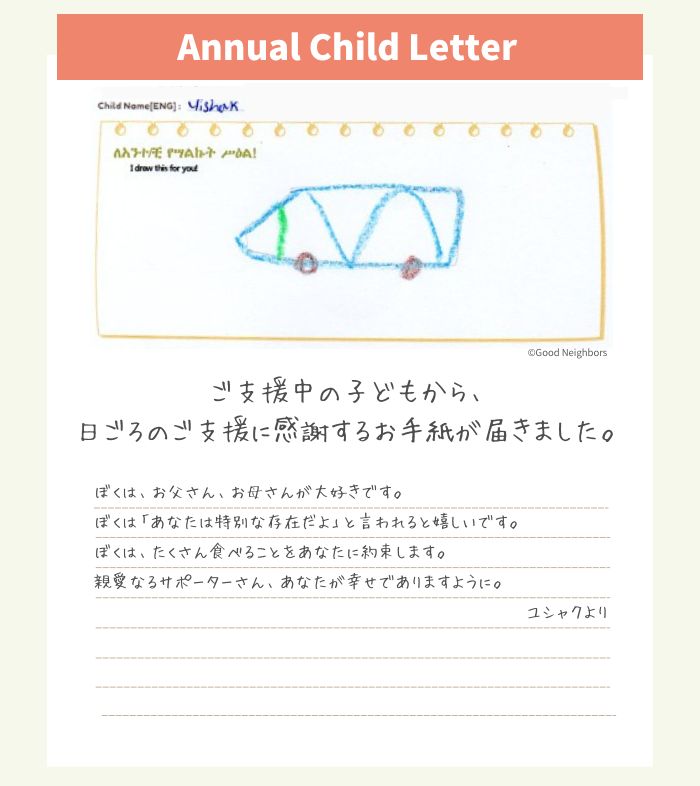 Annual Child Letter
Child Name[ENG] : Yishak
ለእንተ/ቺ የሣልኩት ሥዕል!
I drew this for you!
©Good Neighbors
ご支援中の子どもから、
日ごろのご支援に感謝するお手紙が届きました。
ぼくは、お父さん、お母さんが大好きです。
ぼくは「あなたは特別な存在だよ」と言われると嬉しいです。
ぼくは、たくさん食べることをあなたに約束します。
親愛なるサポーターさん、あなたが幸せでありますように。
ユシャクより